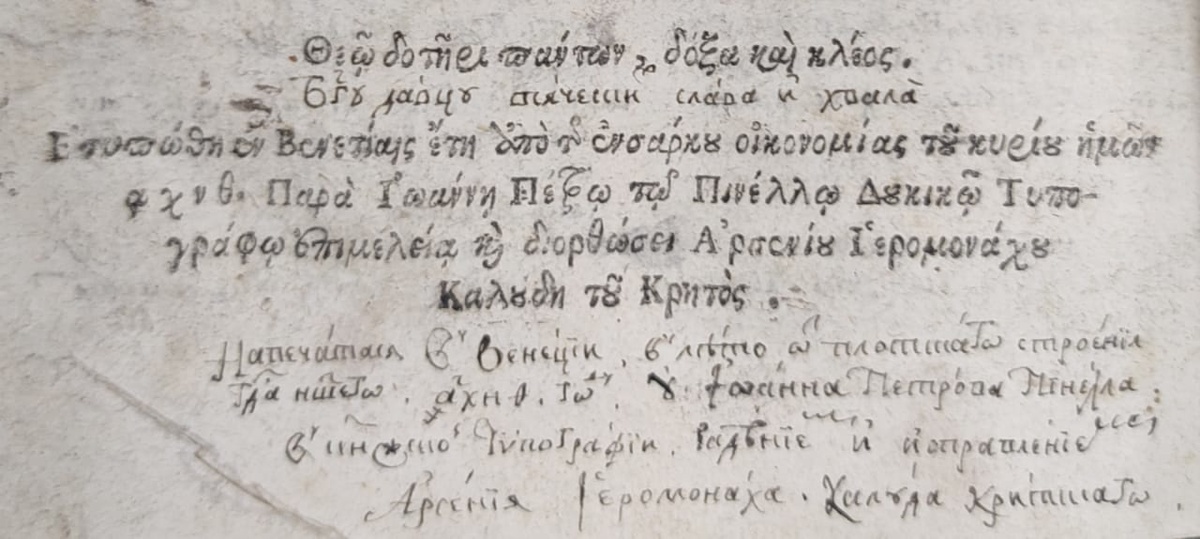 Θεῷ δοτῆρι πάντων, δόξα καὶ κλέος.
Бг҃у дарцу всѧчески слава и хвала
Ετυπώθη ἐν Βενετίαις ἔτη ἀπὸ τ ἐνσάρκου οἰκονομίας τοῦ κυρίου ἡμῶν
αχνθ. Παρὰ Ἰωάννῃ Πέτρῳ τῷ Πινέλλῳ Δουκικῷ Τυπο-
γράφῳ ἐπιμελείᾳ καὶ διορθώσει Ἀρσενίου Ἱερομονάχου
Καλούδη τοῦ Κρητὸς.
Напечатася в Венецїи, в лѣто ѿ плотскагѡ строенїѧ
гд҃а нш҃егѡ. ахнѳ. го҃ ѹ Іѡанна Петрова Пїнелла:
в Тѵпографїи, и исправленїе
Арсенїя Іеромонаха. Калуда критскагѡ.